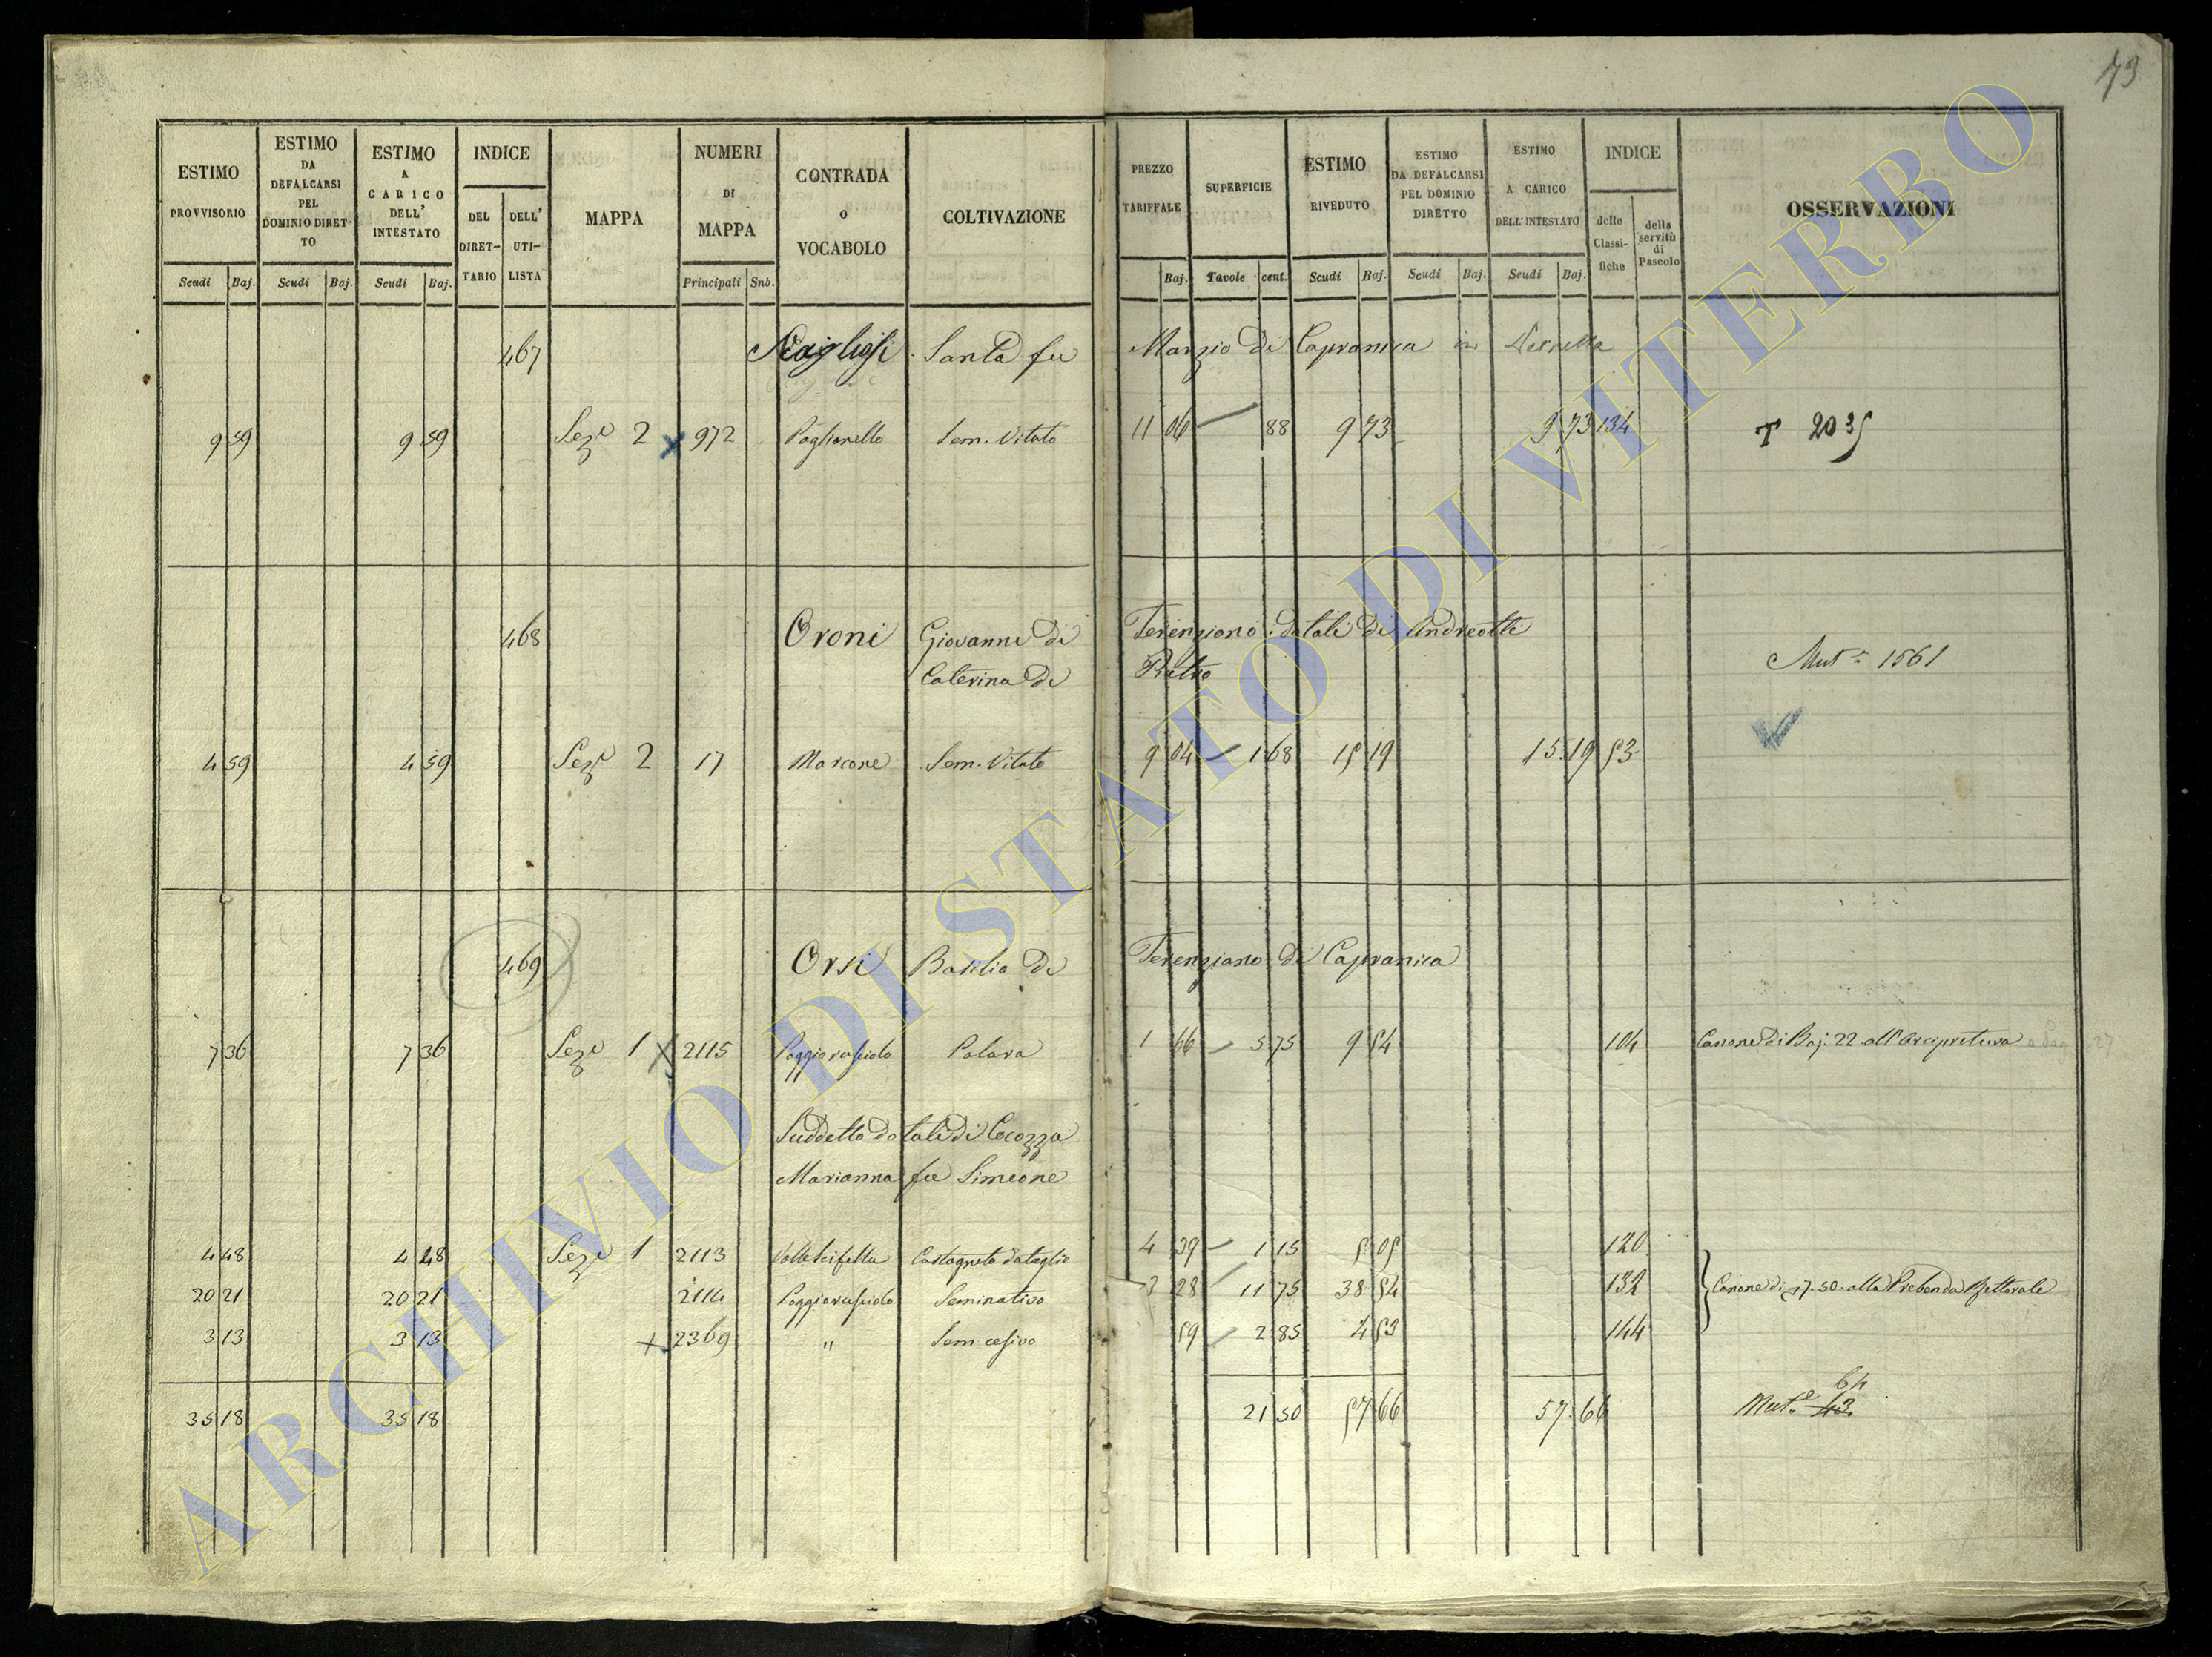 73
ESTIMO PROVVISORIO
ESTIMO DA DEFALCARSI PEL DOMINIO DIRET-TO
ESTIMO A CARICO DELL' INTESTATO
INDICE
DEL DIRET-TARIO
DELL' UTI-LISTA
MAPPA
NUMERI DI MAPPA
CONTRADA o VOCABOLO
COLTIVAZIONE
PREZZO TARIFFALE
SUPERFICIE
ESTIMO RIVEDUTO
ESTIMO DA DEFALCARSI PEL DOMINIO DIRETTO
ESTIMO A CARICO DELL'INTESTATO
INDICE
delle Classi-fiche
della servitù di Pascolo
OSSERVAZIONI
Scudi Baj. Scudi Baj. Scudi Baj. Principali Sub. Baj. Tavole cent. Scudi Baj. Scudi Baj. Scudi Baj.
467 Santa fu Marzio di Capranica in
9 59 9 59 Sez.e 2 x 972 Poglianello Sem. Vitato 11 06 — 88 9 73 9 73 134 T 2035
468 Oroni Giovanni di Terenziano dotali di Andreotti
Caterina di Pietro
Mut.e 1561
4 59 4 59 Sez.e 2 17 Marcone Sem. Vitato 9 04 — 1 68 15 19 15 19 53
469 Orsi Basilio di Terenziano di Capranica
7 36 7 36 Sez.e 1 x 2115 Palara 1 66 — 5 75 9 54 104 Canone di Baj. 22 all'Arcipretura
Suddetto dotali di Cecozza
Marianna fu Simeone
4 48 4 48 Sez.e 1 2113 Valle Scifella Castagneto da taglio 4 39 — 1 15 5 05 120
20 21 20 21 2114 Seminativo 3 28 11 75 38 54 132 Canone di 17.50 alla Prebenda
3 13 3 13 x 2369 " Sem cesivo 59 — 2 85 4 53 144
35 18 35 18 21 50 57 66 57 66 Mut.e 43. 64
ARCHIVIO DI STATO DI VITERBO